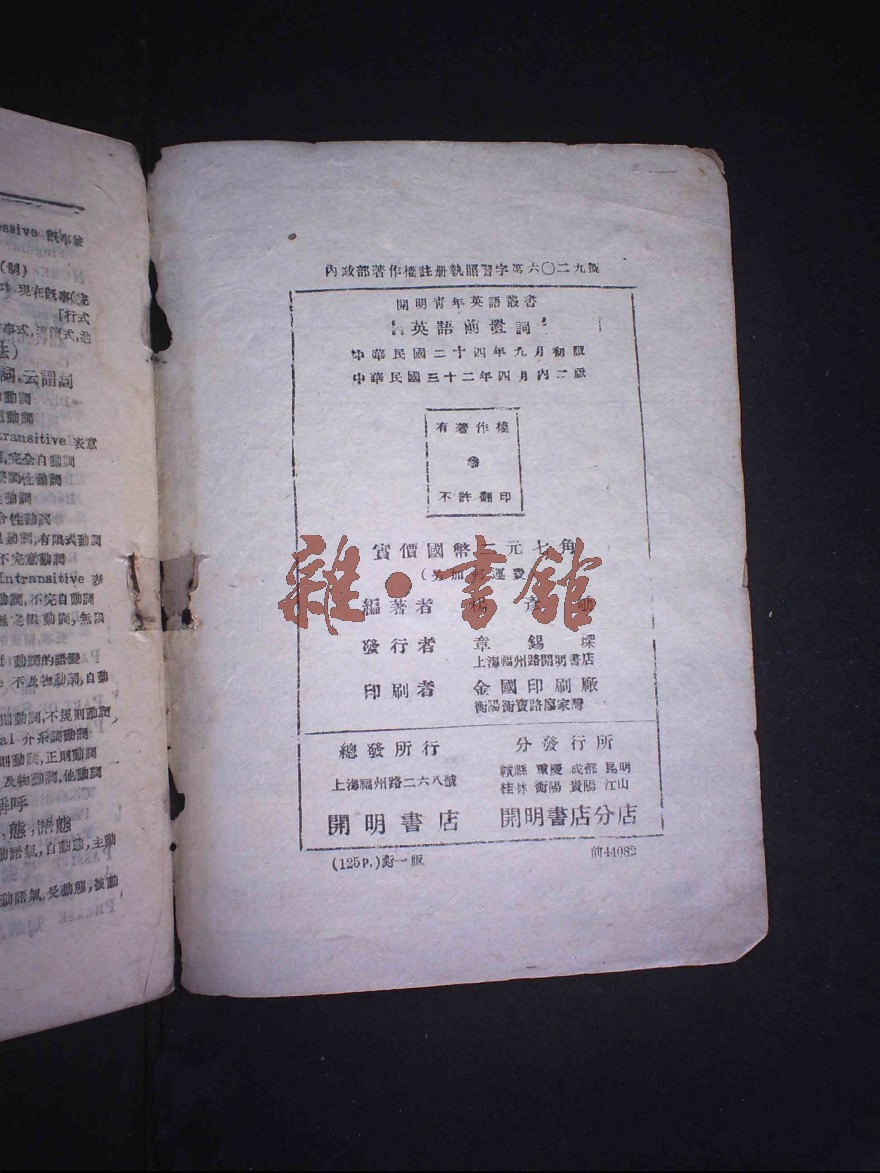 ssive 既事被
(制)
現在旣事(完
「行式
法)
詞,云謂詞
動詞
動詞
transitive 表意
,完全自動詞
性動詞
動詞
合性動詞
動詞,有限式動詞
不完意動詞
Intransitive 表
動詞,不完自動詞
無定限動詞,無限
動詞的語變
e 不及物動詞,自動
則動詞,不規則動詞
al 介系詞動詞
則動詞,正則動詞
及物動詞,他動詞
稱呼
,態,語態
動語氣,自動態,主動
動語氣,受動態,被動
內政部著作權註册執照警字第六〇二九號
開明青年英語叢書
英語前置詞
中華民國二十四年九月初版
中華民國三十二年四月內二版
有著作權
不許翻印
實價國幣 元七角
(另加郵運費
編著者 楊彦
發行者 章錫琛
上海福州路開明書店
印刷者 金國印刷廠
衡陽衡寶路廖家灣
總發行所 分發行所
上海福州路二六八號
贛縣 重慶 成都 昆明
桂林 衡陽 貴陽 江山
開明書店 開明書店分店
(125P.)衡一版 前44082
雜·書館